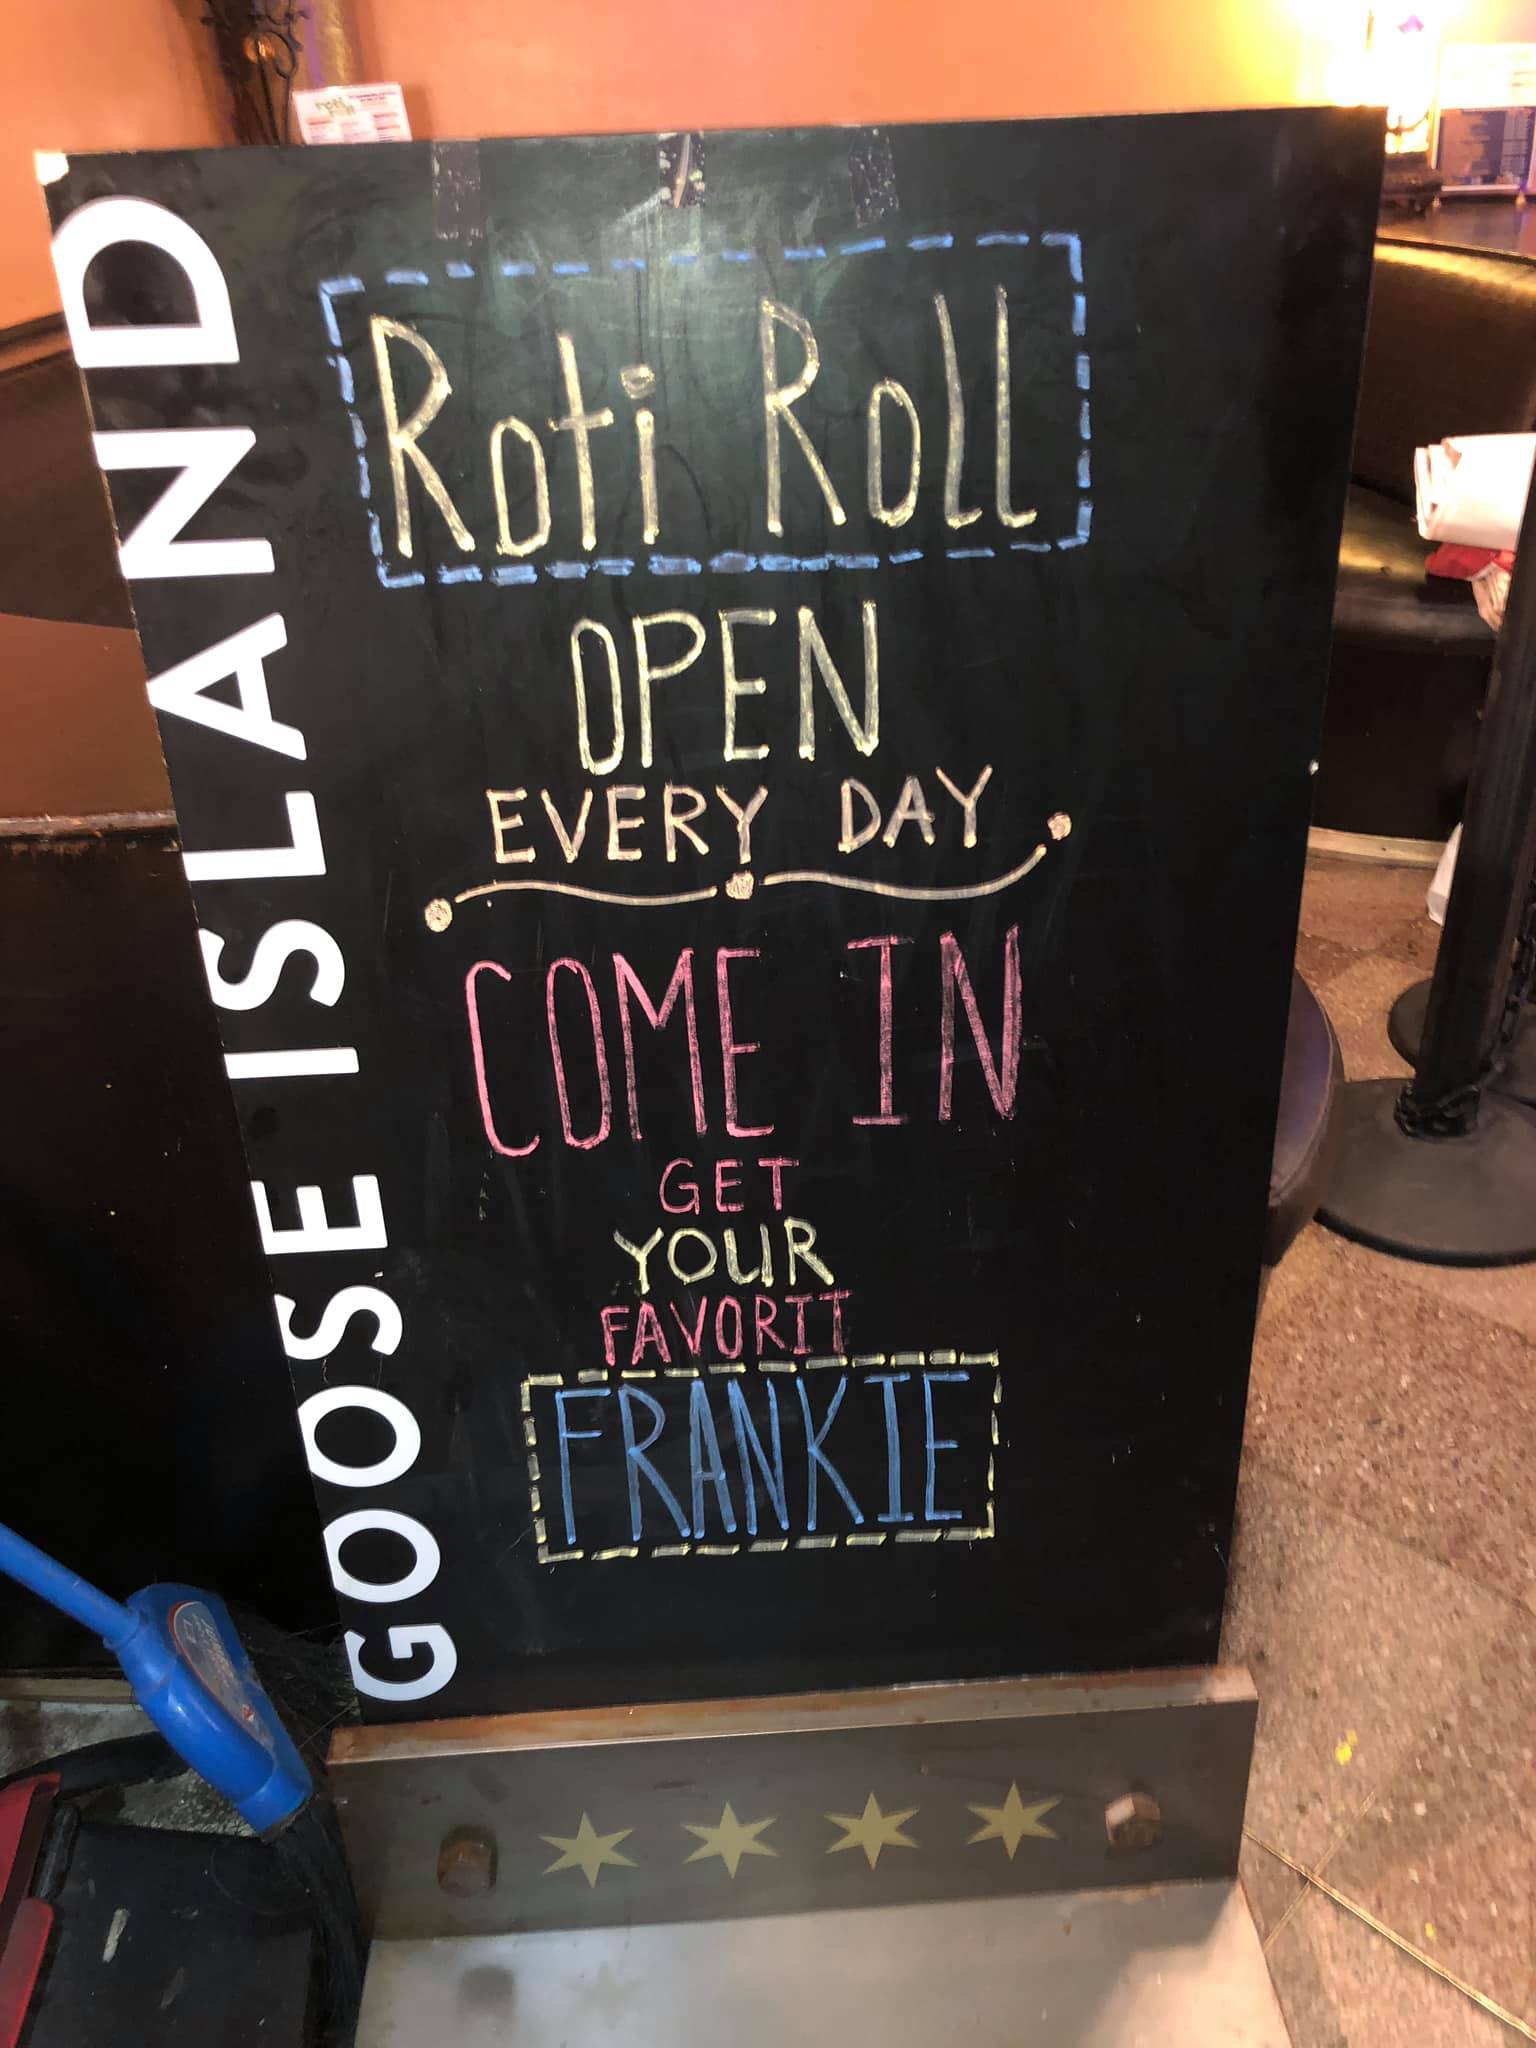 GOOSE ISLAND
Roti Roll
OPEN
EVERY DAY
COME IN
GET
YOUR
FAVORIT
FRANKIE